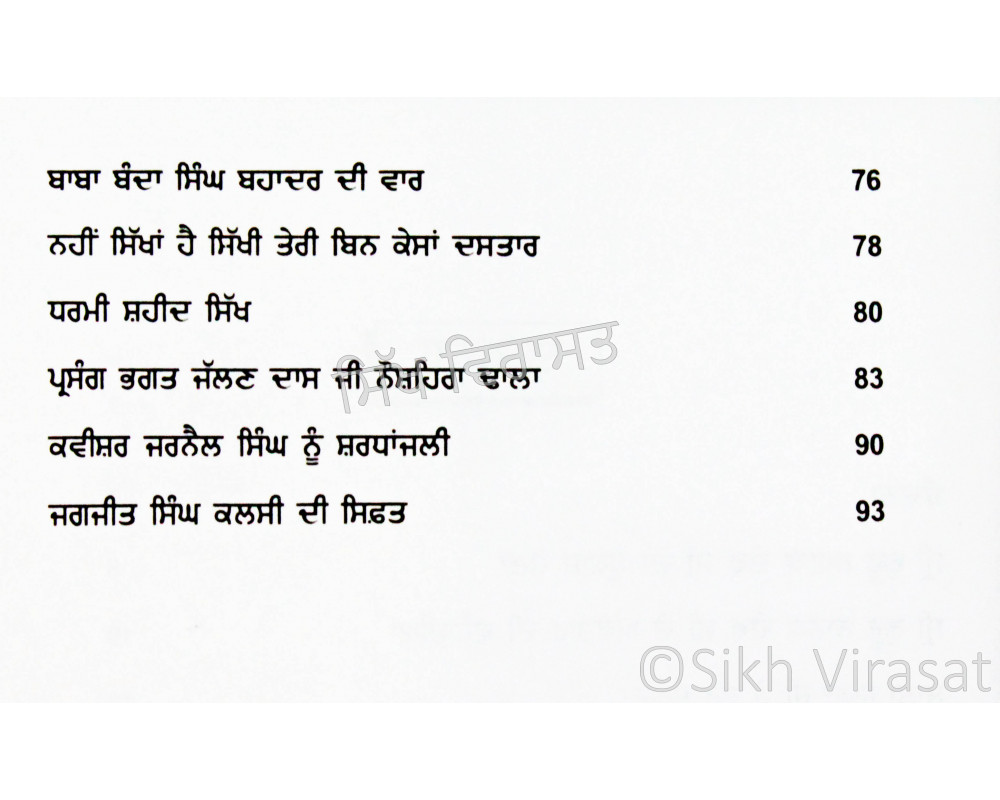 ਬਾਬਾ ਬੰਦਾ ਸਿੰਘ ਬਹਾਦਰ ਦੀ ਵਾਰ 76
ਨਹੀਂ ਸਿੱਖਾਂ ਹੈ ਸਿੱਖੀ ਤੇਰੀ ਬਿਨ ਕੇਸਾਂ ਦਸਤਾਰ 78
ਧਰਮੀ ਸ਼ਹੀਦ ਸਿੱਖ 80
ਪ੍ਰਸੰਗ ਭਗਤ ਜੱਲਣ ਦਾਸ ਜੀ ਨੌਸ਼ਹਿਰਾ ਢਾਲਾ 83
ਸਿੱਖ ਵਿਰਾਸਤ
ਕਵੀਸ਼ਰ ਜਰਨੈਲ ਸਿੰਘ ਨੂੰ ਸ਼ਰਧਾਂਜਲੀ 90
ਜਗਜੀਤ ਸਿੰਘ ਕਲਸੀ ਦੀ ਸਿਫ਼ਤ 93
©Sikh Virasat